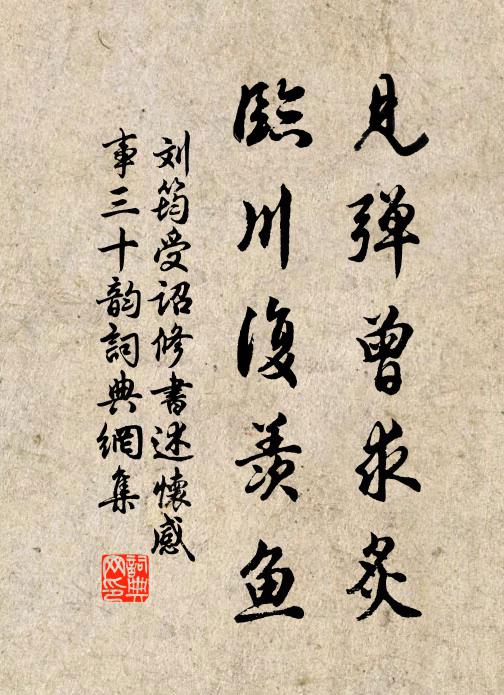 见弹曾求炙
臨川復羨鱼
刘筠受诏修書述懷感
事三十韵詞典網集
詞典
网印